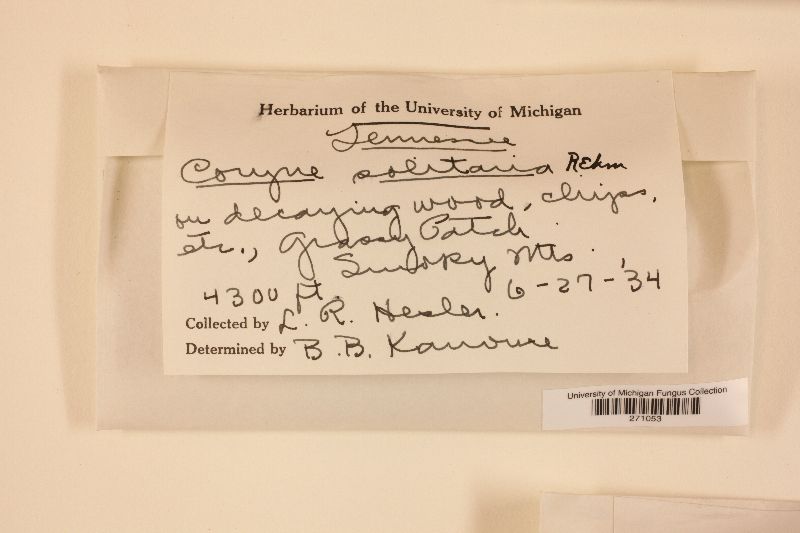 Herbarium of the University of Michigan
Tennessee
Coryne solitaria Rehm
on decaying wood, chips,
etc., Grassy Patch
Smoky Mts.
4300 ft. 6-27-'34
Collected by L. R. Hesler.
Determined by B. B. Kanouse
University of Michigan Fungus Collection
271053